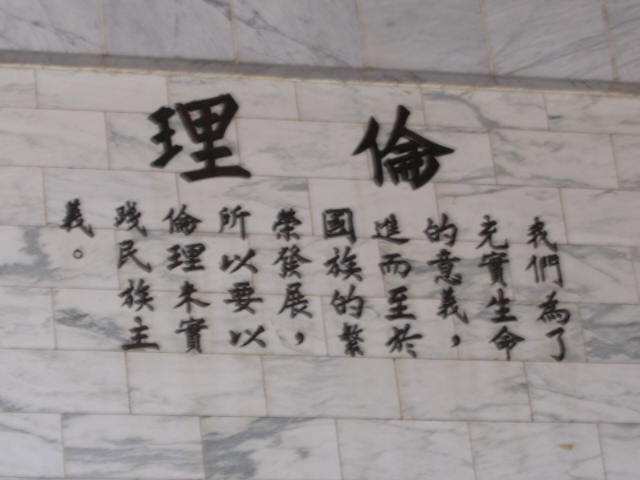 倫理
我們為了
充實生命
的意義，
進而至於
國族的繫
榮發展，
所以要以
倫理來實
踐民族主
義。